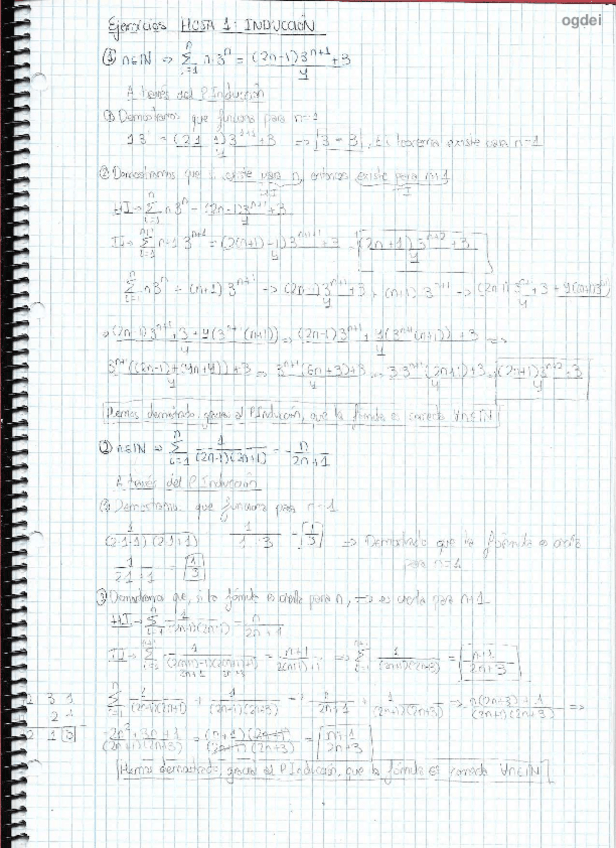 ogdei
Ejercicios HOJA 1: INDUCCIÓN
① n∈IN ⇒ Σ_{i=1}^{n} n·3^n = ((2n-1)3^{n+1}+3)/4
A través del P. Inducción
① Demostramos que funciona para n=1
⇒ |3 = 3|, existe para n=1
② Demostramos que si existe para n, entonces existe para n+1
HI → Σ_{i=1}^{n} n3^n = ((2n-1)3^{n+1}+3)/4
TI → Σ_{i=1}^{n+1} n+1 3^{n+1} = ((2(n+1)-1)3^{n+1+1}+3)/4 = ((2n+1)3^{n+2}+3)/4
Σ_{i=1}^{n} n3^n + (n+1)3^{n+1} → ((2n-1)3^{n+1}+3)/4 + (n+1)3^{n+1} →
((2n-1)3^{n+1}+3+4(3^{n+1}(n+1)))/4 ⇒ ((2n-1)3^{n+1}+4(3^{n+1}(n+1))+3)/4 ⇒
(3^{n+1}((2n-1)+(4n+4))+3)/4 ⇒ (3^{n+1}(6n+3)+3)/4 ⇒ (3·3^{n+1}(2n+1)+3)/4 = ((2n+1)3^{n+2}+3)/4
Hemos demostrado, gracias al P Inducción, que la fórmula es correcta ∀n∈IN
② n∈IN ⇒ Σ_{i=1}^{n} 1/((2n-1)(2n+1)) = n/(2n+1)
A través del P Inducción
① Demostramos que funciona para n=1
1/((2·1-1)(2·1+1)) = 1/(1·3) = 1/3 ⇒ Demostrado que la fórmula es
para n=1
1/(2·1+1) = 1/3
② Demostramos que, si la fórmula es cierta para n, ⇒ es cierta para n+1
HI → Σ_{i=1}^{n} 1/((2n-1)(2n+1)) = n/(2n+1)
TI → Σ_{i=1}^{n+1} 1/((2(n+1)-1)(2(n+1)+1)) = (n+1)/(2(n+1)+1) ⇒ Σ_{i=1}^{n+1} 1/((2n+1)(2n+3)) = (n+1)/(2n+3)
Σ_{i=1}^{n} 1/((2n-1)(2n+1)) + 1/((2n+1)(2n+3)) → n/(2n+1) + 1/((2n+1)(2n+3)) → (n(2n+3)+1)/((2n+1)(2n+3)) ⇒
(2n²+3n+1)/((2n+1)(2n+3)) = ((n+1)(2n+1))/((2n+1)(2n+3)) = (n+1)/(2n+3)
2 3 1
2 1
2 1 0
Hemos demostrado, gracias al P Inducción, que la fórmula es correcta ∀n∈IN